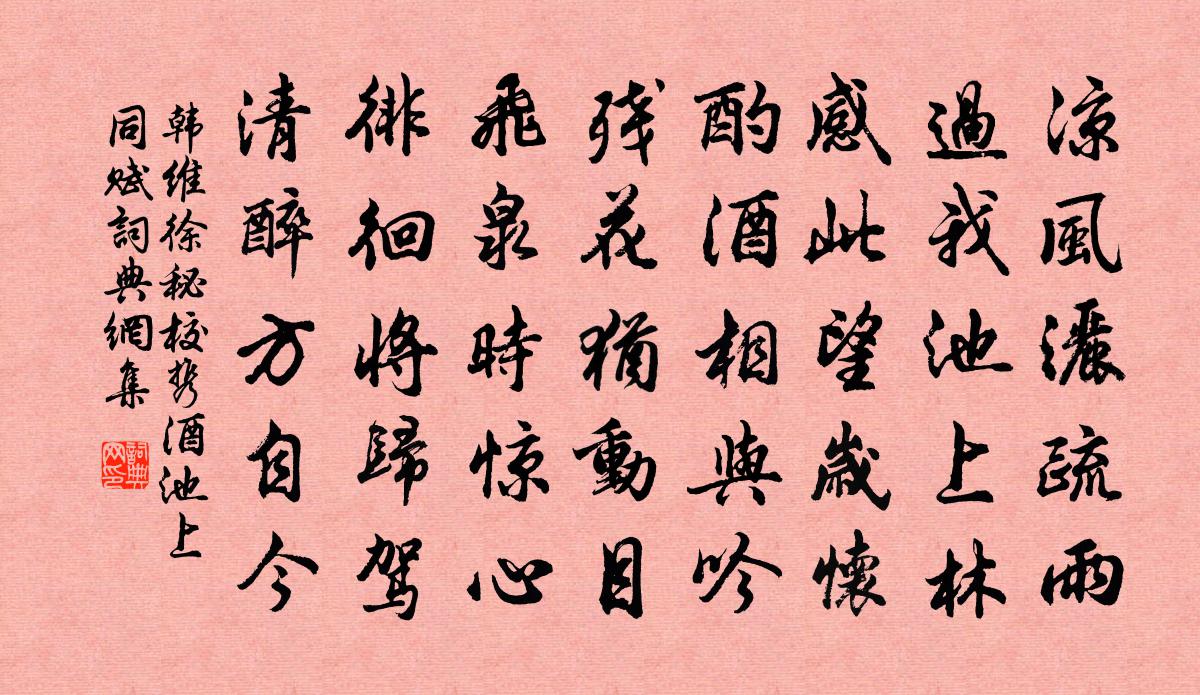 凉風灑疏雨
過我池上林
感此望歲懷
酌酒相與吟
残花猶動目
飛泉時惊心
徘徊將歸駕
清醉方自今
韩維徐秘校携酒池上
同赋詞典網集
詞典网印